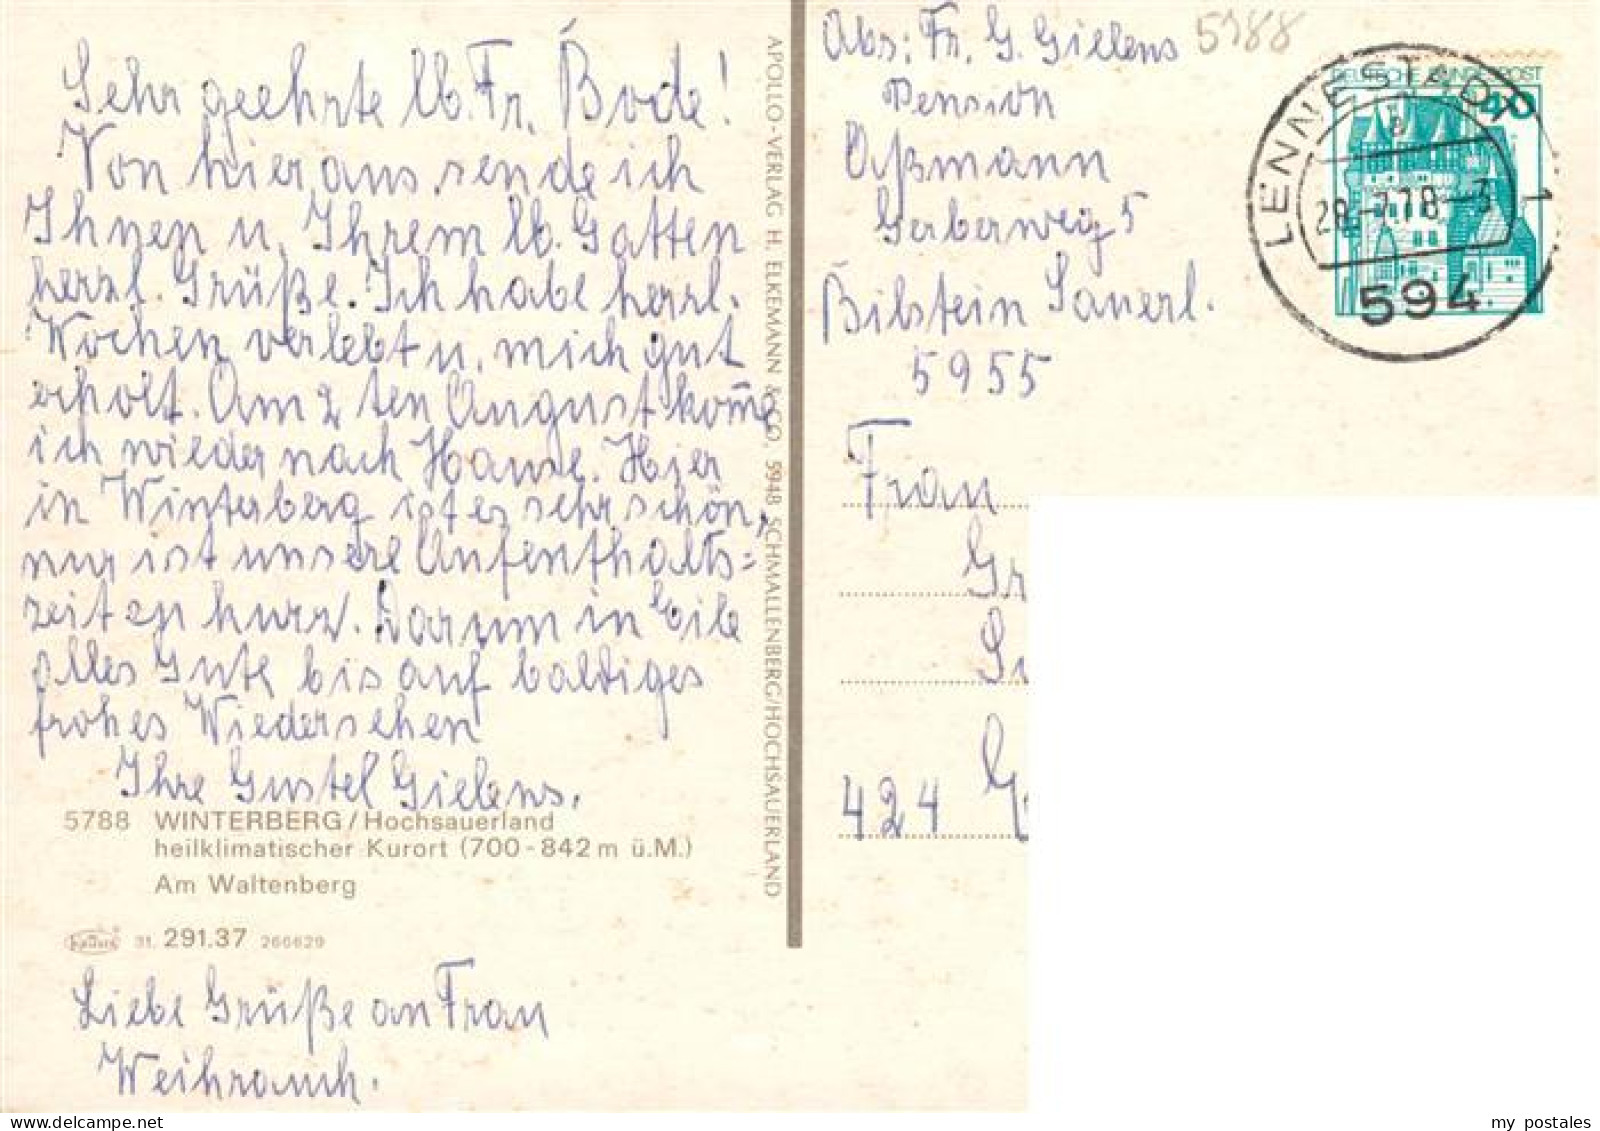 Sehr geehrte lb. Fr. Bode!
Von hier aus sende ich
Ihnen u. Ihrem lb. Gatten
herzl. Grüße. Ich habe herrl.
Wochen verlebt u. mich gut
erholt. Am 2 ten August kom̅e
ich wieder nach Hause. Hier
in Winterberg ist es sehr schön,
nur ist unsere Aufenthalts=
zeit zu kurz. Darum in Eile
alles Gute bis auf baldiges
frohes Wiedersehen
Ihre Gustel Gielens.
5788 WINTERBERG/Hochsauerland
heilklimatischer Kurort (700-842 m ü.M.)
Am Waltenberg
31. 291.37 266629
Liebe Grüße an Frau
Weihrauch.
APOLLO-VERLAG H. ELKEMANN & CO. 5948 SCHMALLENBERG/HOCHSAUERLAND
Abs: Fr. G. Gielens 5788
Pension
Aßmann
Gerberweg 5
Bilstein Sauerl.
5955
DEUTSCHE BUNDESPOST
40
LENNESTADT 1
a
28.-7.78-3
594
Frau
Gr
424
my postales